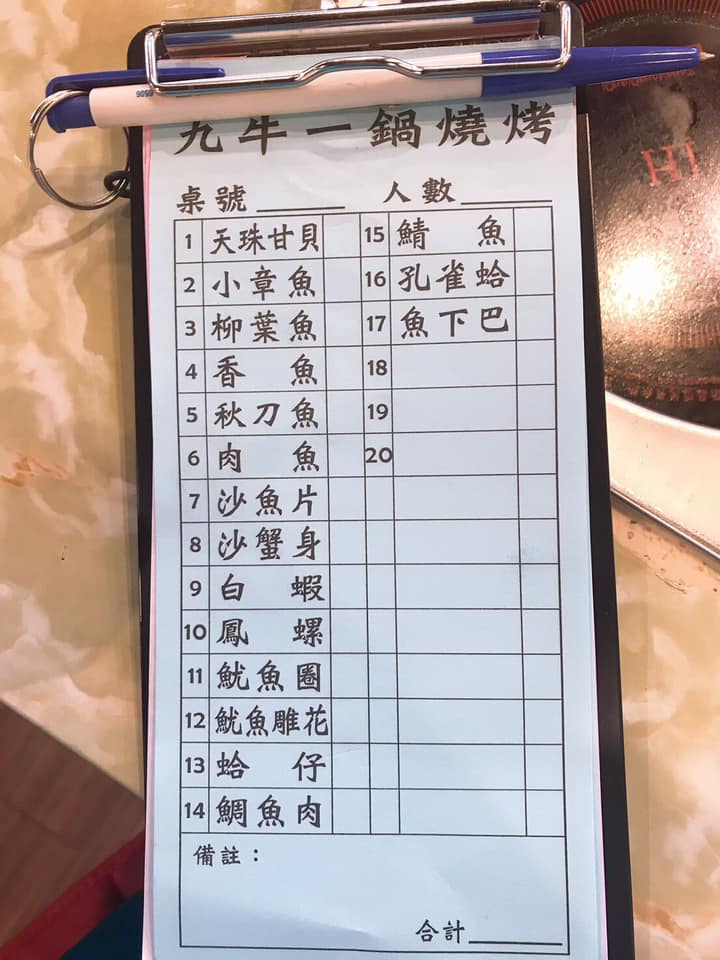 九牛一鍋燒烤
桌號 人數
1 天珠甘貝
2 小章魚
3 柳葉魚
4 香魚
5 秋刀魚
6 肉魚
7 沙魚片
8 沙蟹身
9 白蝦
10 鳳螺
11 魷魚圈
12 魷魚雕花
13 蛤仔
14 鯛魚肉
15 鯖魚
16 孔雀蛤
17 魚下巴
18
19
20
備註：
合計
HI